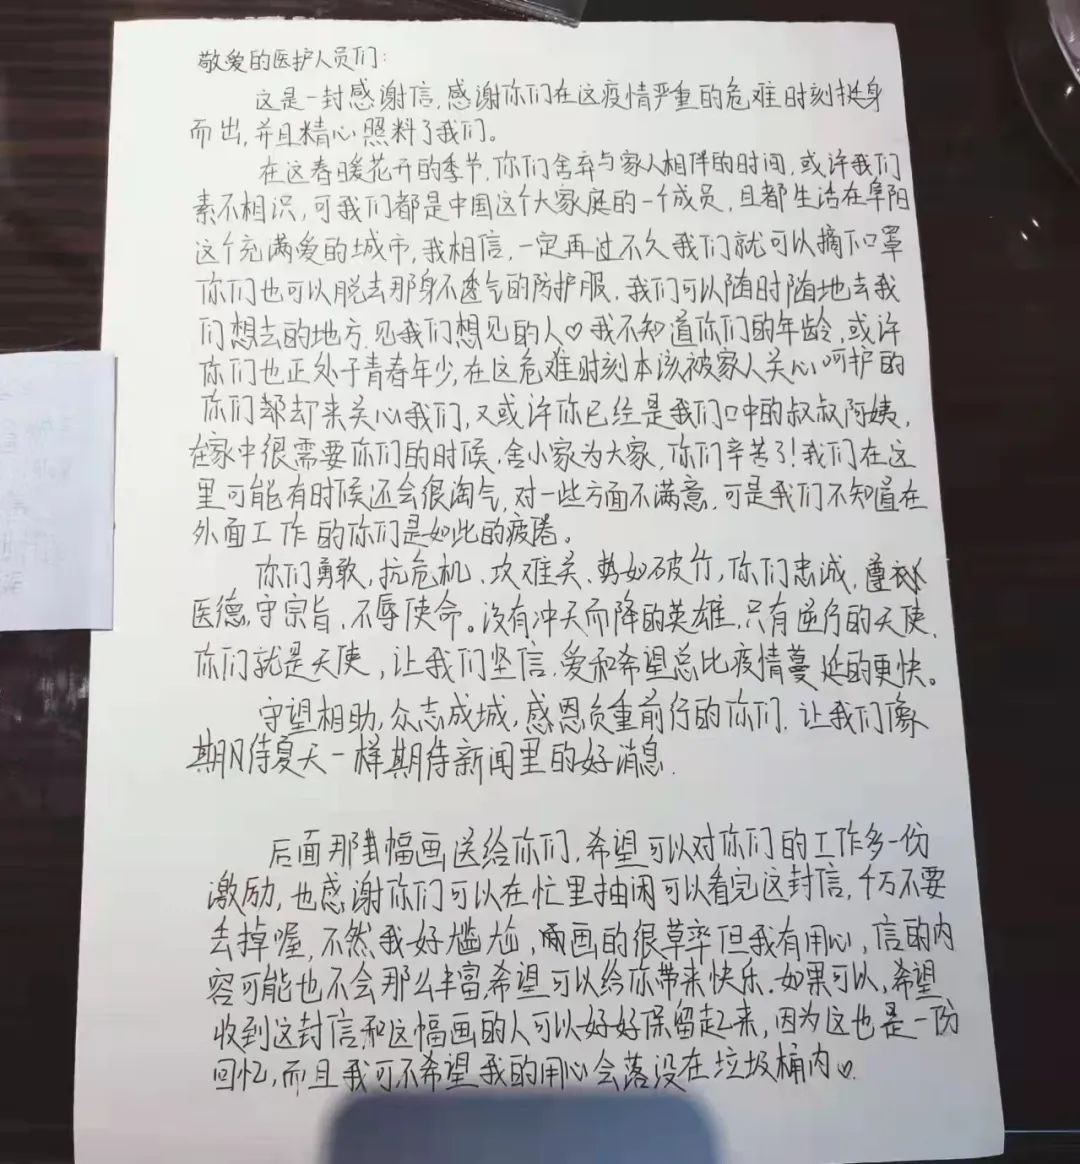 敬爱的医护人员们:
这是一封感谢信,感谢你们在这疫情严重的危难时刻挺身
而出,并且精心照料了我们。
在这春暖花开的季节,你们舍弃与家人相伴的时间,或许我们
素不相识,可我们都是中国这个大家庭的一个成员,且都生活在阜阳
这个充满爱的城市,我相信,一定再过不久我们就可以摘下口罩
你们也可以脱去那身不透气的防护服,我们可以随时随地去我
们想去的地方,见我们想见的人♡我不知道你们的年龄,或许
你们也正处于青春年少,在这危难时刻本该被家人关心呵护的
你们却却来关心我们,又或许你已经是我们口中的叔叔阿姨,
在家中很需要你们的时候,舍小家为大家,你们辛苦了!我们在这
里可能有时候还会很淘气,对一些方面不满意,可是我们不知道在
外面工作的你们是如此的疲倦。
你们勇敢,抗危机、攻难关、势如破竹,你们忠诚,遵
医德,守宗旨,不辱使命。没有冲天而降的英雄,只有逆行的天使,
你们就是天使,让我们坚信,爱和希望总比疫情蔓延的更快。
守望相助,众志成城,感恩负重前行的你们,让我们像
期待夏天一样期待新闻里的好消息.
后面那幅画送给你们,希望可以对你们的工作多一份
激励,也感谢你们可以在忙里抽闲可以看完这封信,千万不要
丢掉喔,不然我好尴尬,画的很草率但我有用心,信的内
容可能也不会那么丰富,希望可以给你带来快乐.如果可以,希望
收到这封信和这幅画的人可以好好保留起来,因为这也是一份
回忆,而且我可不希望我的用心会落没在垃圾桶内♡.